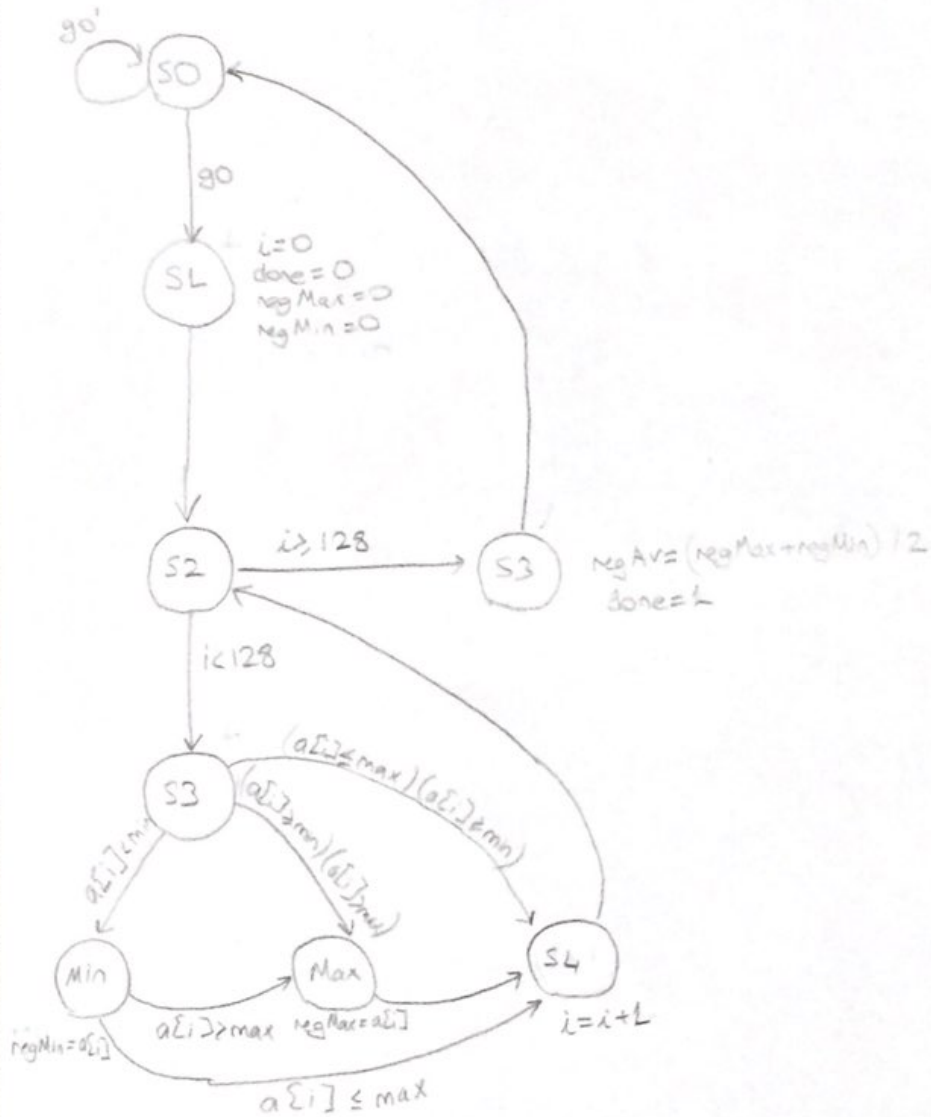 go'
S0
go
S1
i=0
done=0
regMax=0
regMin=0
S2
i≥128
S3
regAv=(regMax+regMin)/2
done=1
i<128
S3
(a[i]≤max)(a[i]≥min)
(a[i]≥min)(a[i]>max)
a[i]<min
Min
Max
S4
regMin=a[i]
a[i]>max
regMax=a[i]
i=i+1
a[i]≤max